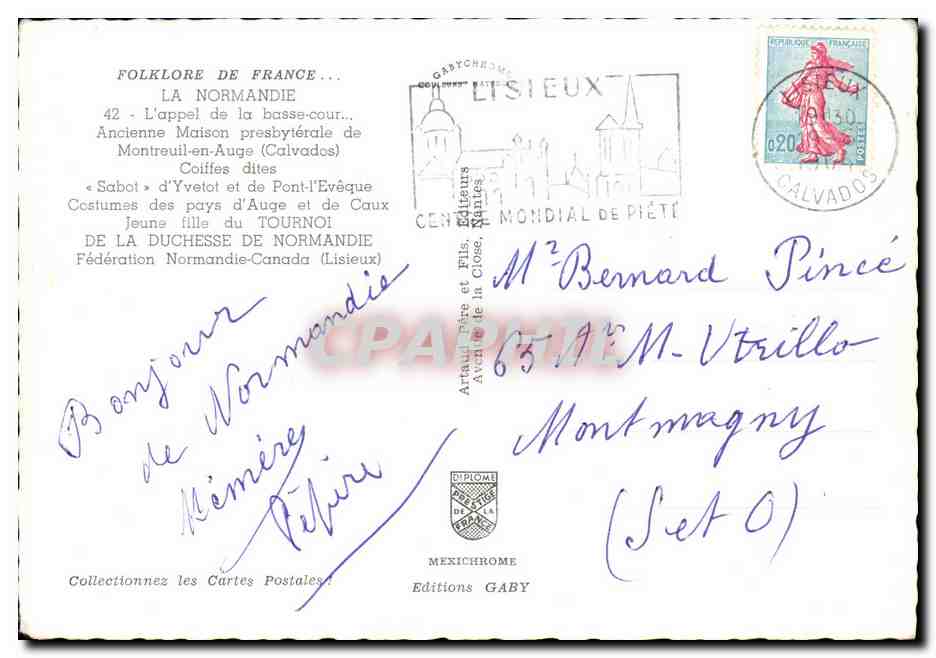 FOLKLORE DE FRANCE...
LA NORMANDIE
42 - L'appel de la basse-cour...
Ancienne Maison presbytérale de
Montreuil-en-Auge (Calvados)
Coiffes dites
« Sabot » d'Yvetot et de Pont-l'Evêque
Costumes des pays d'Auge et de Caux
Jeune fille du TOURNOI
DE LA DUCHESSE DE NORMANDIE
Fédération Normandie-Canada (Lisieux)
Bonjour
de Normandie
Mémère
Pépère
Collectionnez les Cartes Postales!
GABYCHROME
LISIEUX
CENTRE MONDIAL DE PIÉTÉ
Artaud Père et Fils, Editeurs
Avenue de la Close, Nantes
CPAPHIL
DIPLOME
PRESTIGE
DE LA
FRANCE
MEXICHROME
Editions GABY
REPUBLIQUE FRANÇAISE
0,20
POSTES
LISIEUX
9H30
CALVADOS
Mr Bernard Pincé
63 Av. M. Utrillo
Montmagny
(S et O)